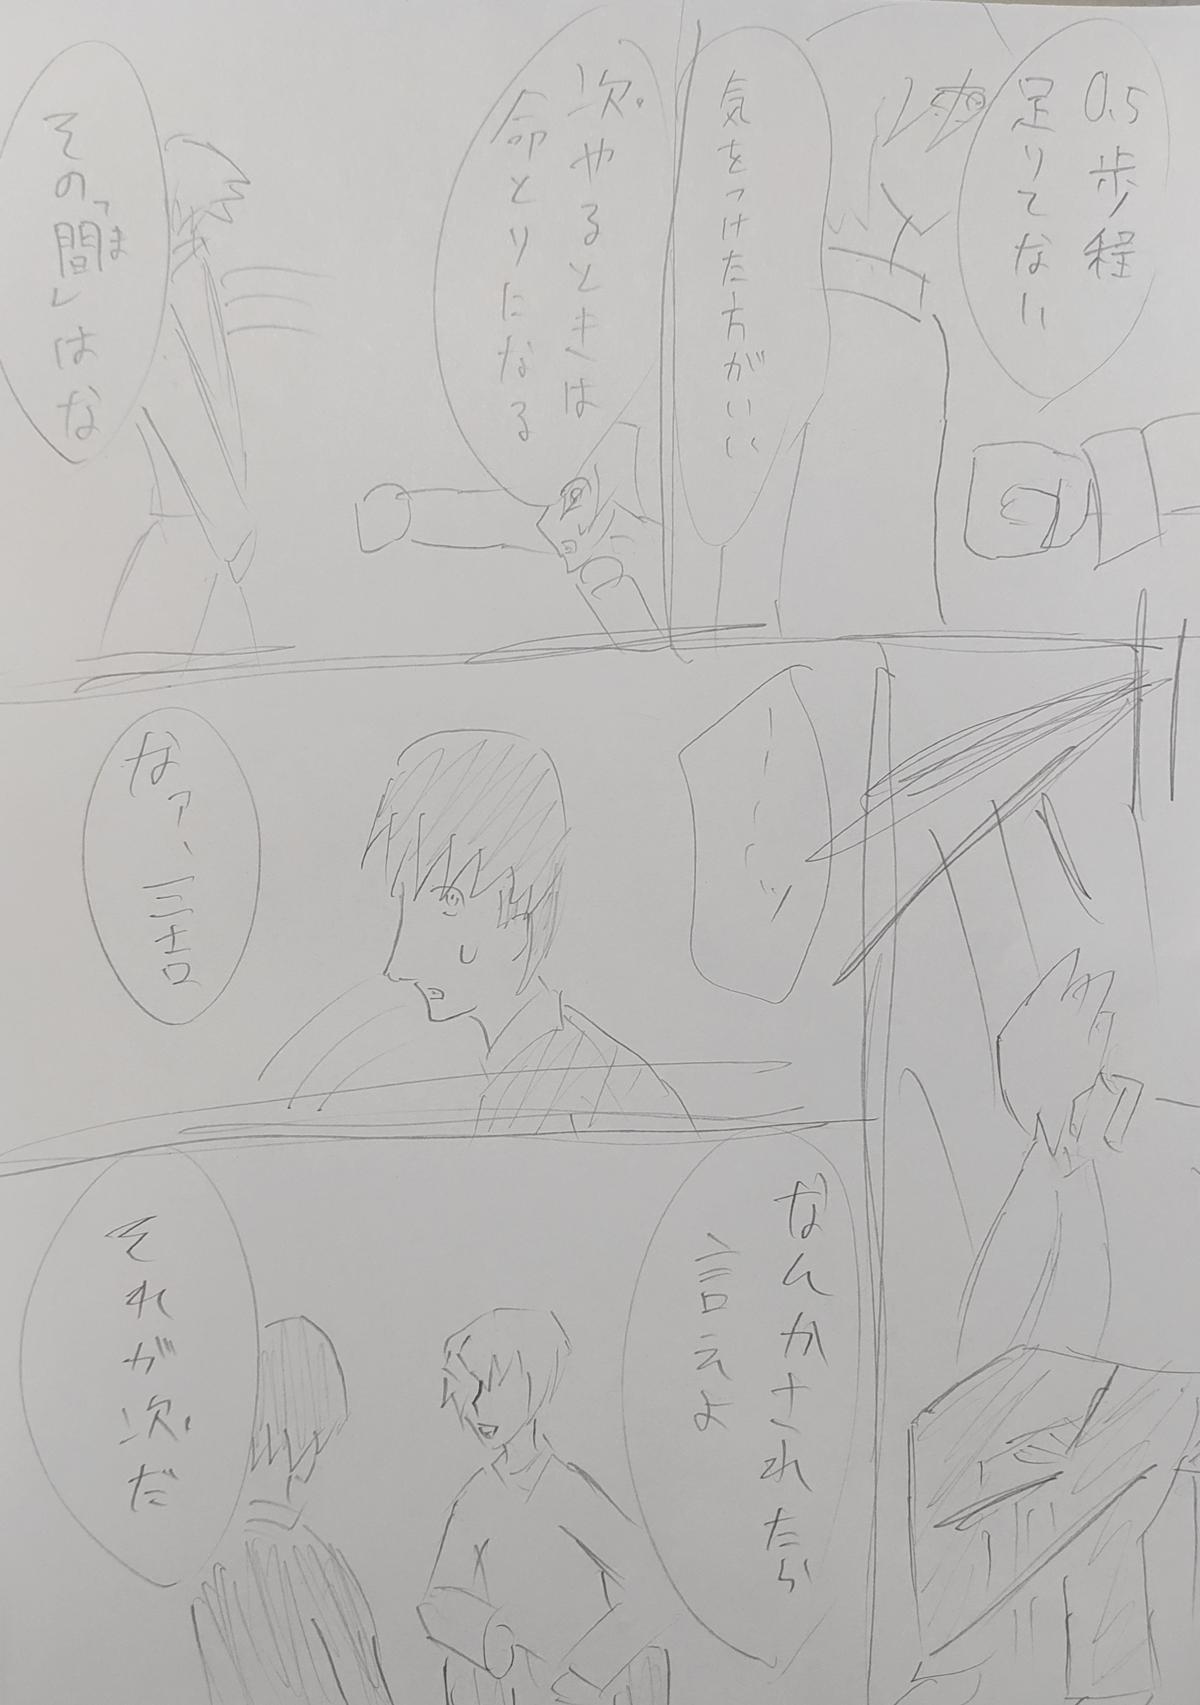 0.5歩程
足りてない
気をつけた方がいい
次やるときは
命とりになる
その「間」はな
ま
ーーーッ
なァ、三吉
なんかされたら
言えよ
それが次だ